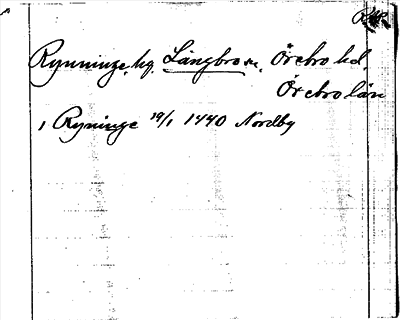 Rynninge, hg. Långbro sn. Örebro hd
Örebro län
i Ryninge 19/1 1440 Nordby